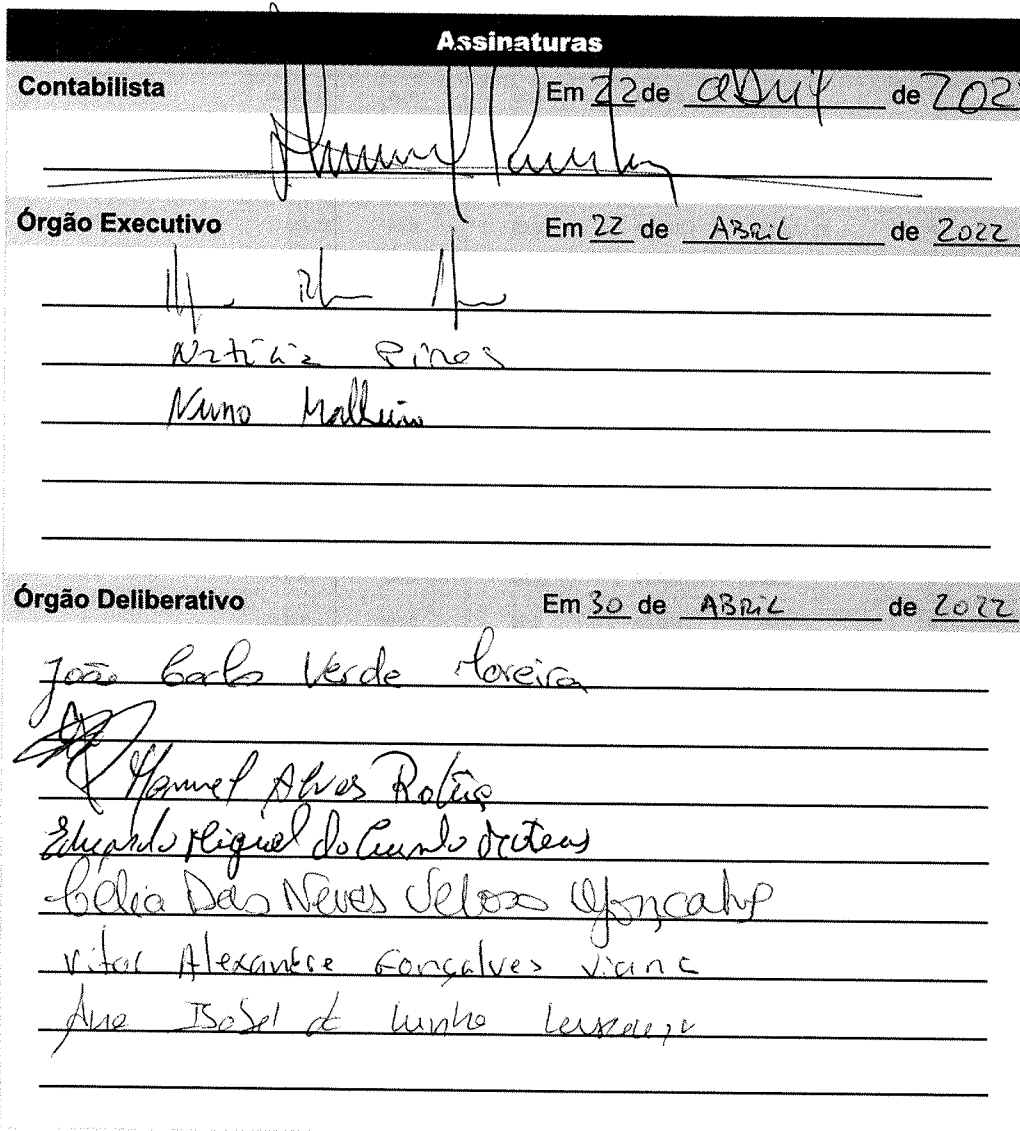 Assinaturas
Contabilista Em 22 de abril de 202
Órgão Executivo Em 22 de ABRIL de 2022
Pires
Nuno Malheiro
Órgão Deliberativo Em 30 de ABRIL de 2022
João Carlos Verde Moreira
Manuel Alves
Eduardo Miguel da Cunha
Célia Das Neves Veloso Gonçalves
Vitor Alexandre Gonçalves Viana
Ana Isabel da Cunha